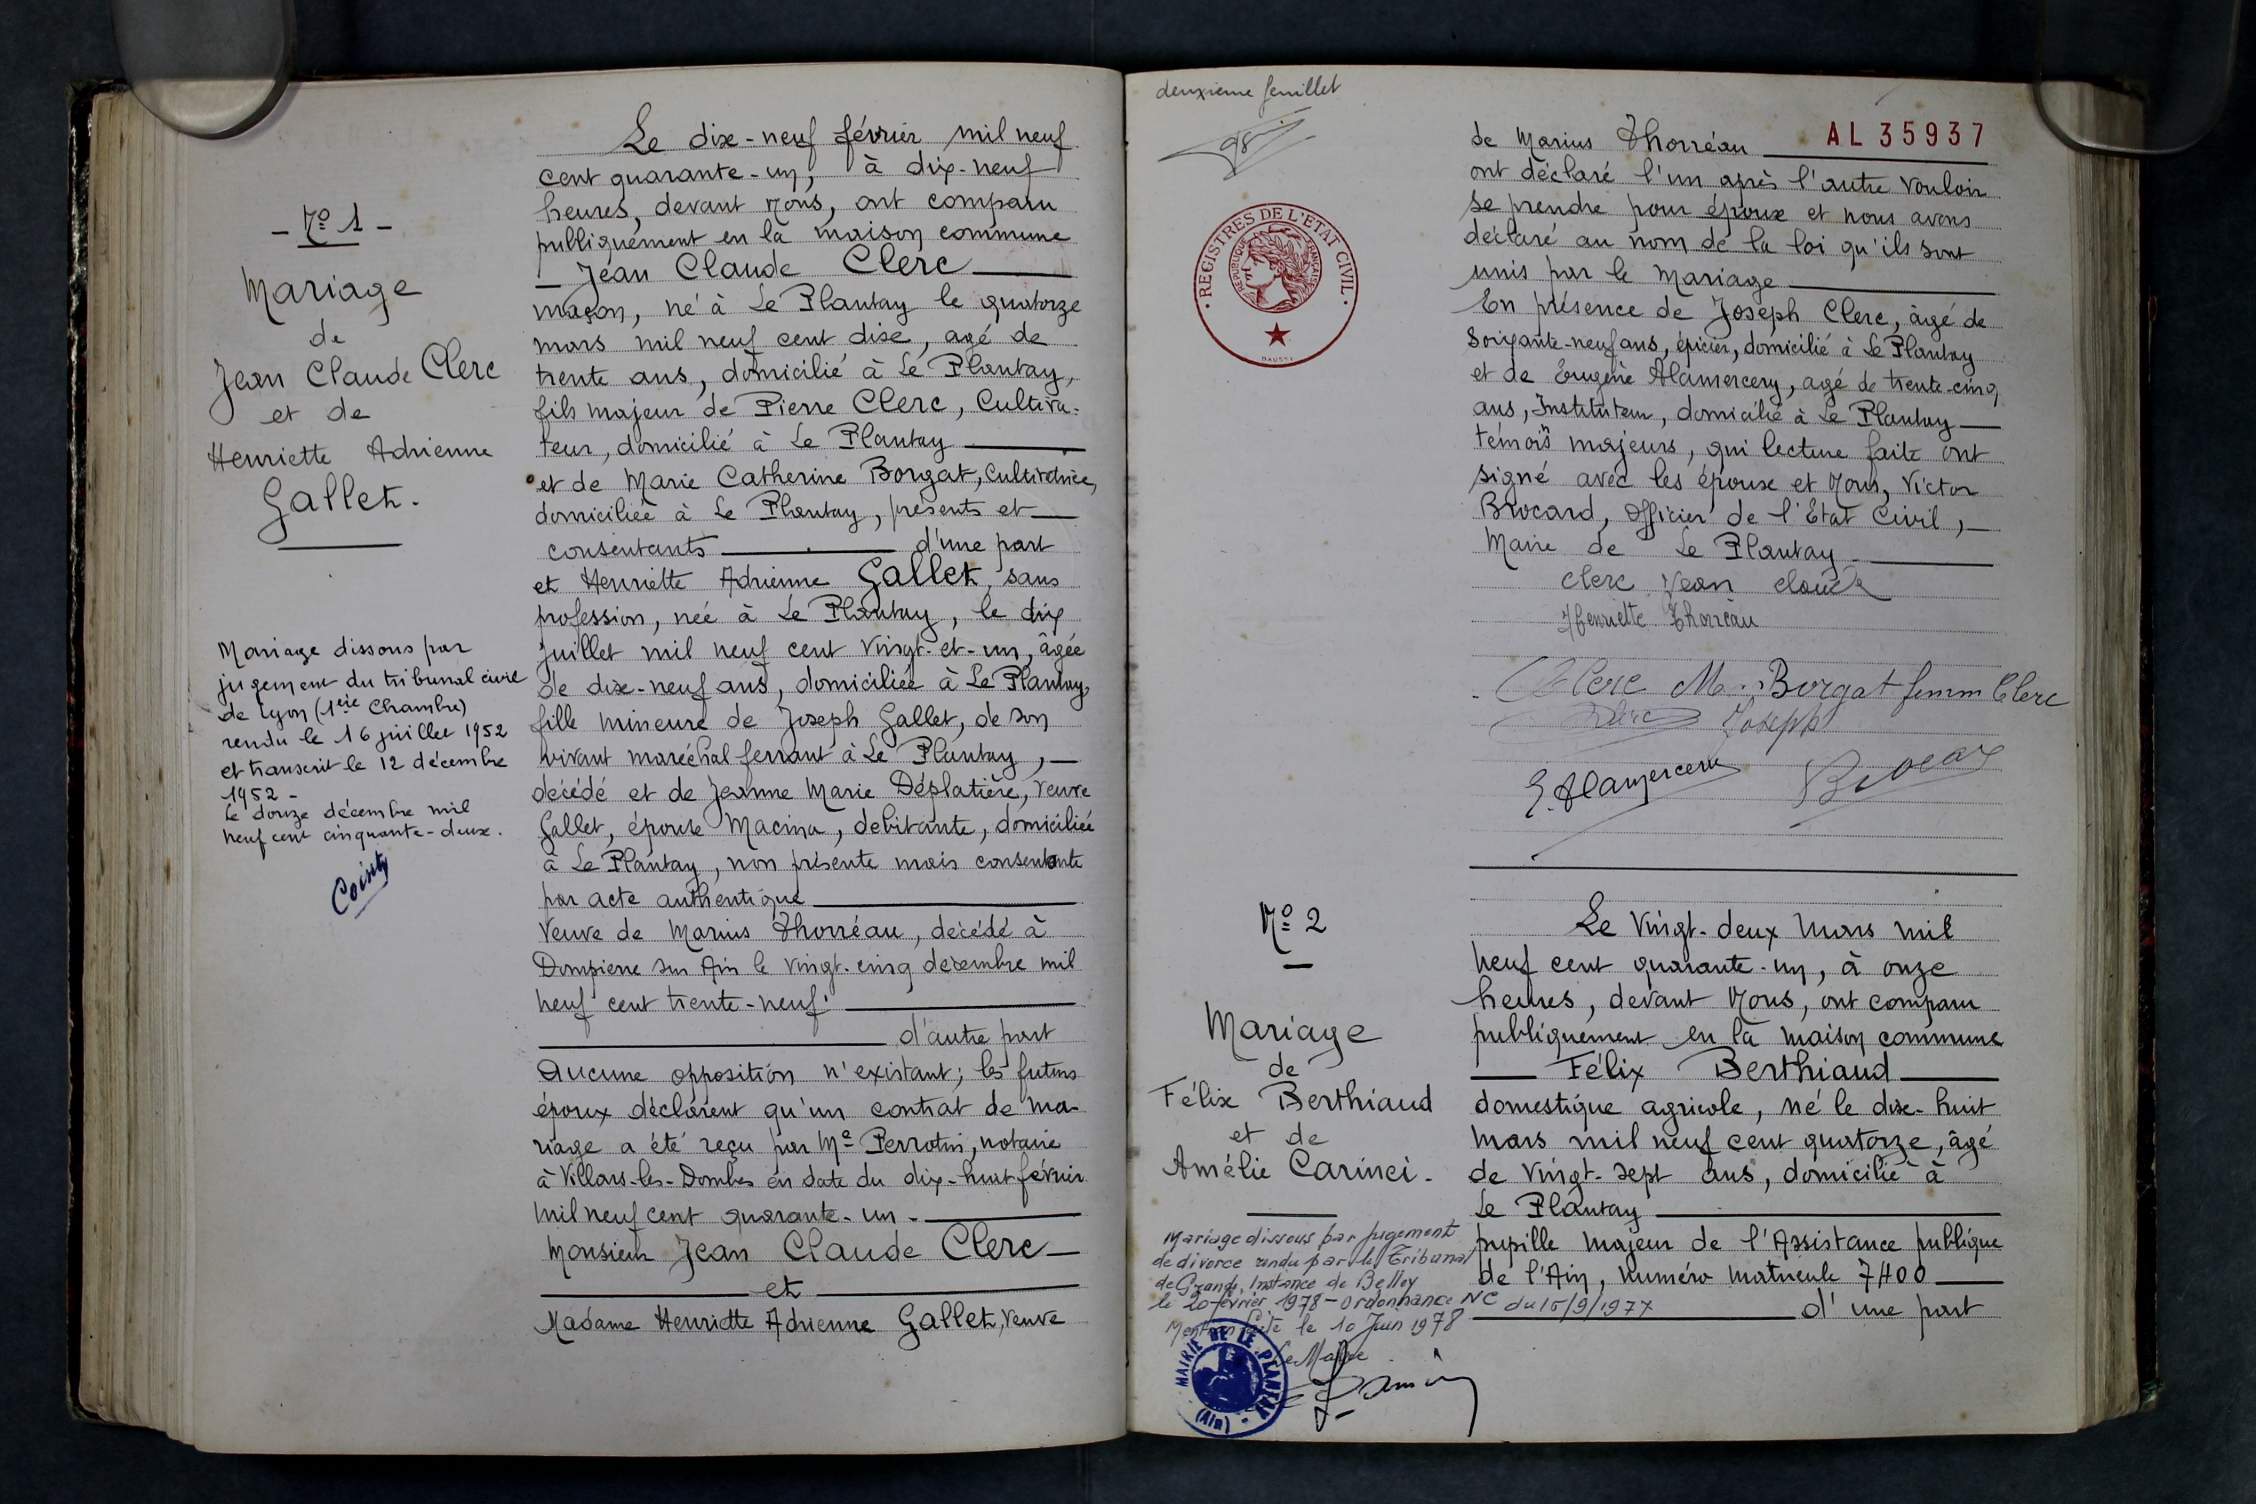 - Nº 1 -
Mariage
de
Jean Claude Clerc
et de
Henriette Adrienne
Gallet.
Mariage dissous par
jugement du tribunal civil
de Lyon (1ère Chambre)
rendu le 16 juillet 1952
et transcrit le 12 décembre
1952 -
Le douze décembre mil
neuf cent cinquante-deux.
Le dix-neuf février mil neuf
cent quarante-un, à dix-neuf
heures, devant Nous, ont comparu
publiquement en la maison commune
Jean Claude Clerc
maçon, né à Le Plantay le quatorze
mars mil neuf cent dix, agé de
trente ans, domicilié à Le Plantay,
fils majeur de Pierre Clerc, Cultiva-
teur, domicilié à Le Plantay
et de Marie Catherine Borgat, Cultivatrice,
domiciliée à Le Plantay, présents et
consentants d'une part
et Henriette Adrienne Gallet, sans
profession, née à Le Plantay, le dix
juillet mil neuf cent vingt-et-un, âgée
de dix-neuf ans, domiciliée à Le Plantay,
fille mineure de Joseph Gallet, de son
vivant maréchal ferrant à Le Plantay,
décédé et de Jeanne Marie Déplatière, veuve
Gallet, épouse Macina, débitante, domiciliée
à Le Plantay, non présente mais consentante
par acte authentique
Veuve de Marius Thorréau, décédé à
Dompierre sur Ain le vingt-cinq décembre mil
neuf cent trente-neuf.
d'autre part
Aucune opposition n'existant; les futurs
époux déclarent qu'un contrat de ma-
riage a été reçu par Me Perrotin, notaire
à Villars-les-Dombes en date du dix-huit février
mil neuf cent quarante-un -
Monsieur Jean Claude Clerc
et
Madame Henriette Adrienne Gallet, veuve
deuxième feuillet
AL 35937
de Marius Thorréau
ont déclaré l'un après l'autre vouloir
se prendre pour époux et nous avons
déclaré au nom de la loi qu'ils sont
unis par le mariage
En présence de Joseph Clerc, âgé de
soixante-neuf ans, épicier, domicilié à Le Plantay
et de Eugène Alamercery, agé de trente-cinq
ans, Instituteur, domicilié à Le Plantay
témoins majeurs, qui lecture faite ont
signé avec les époux et Nous, Victor
Brocard, Officier de l'Etat Civil,
Maire de Le Plantay
Clerc Jean Claude
Henriette Thorréau
Clerc M. Borgat femm Clerc
Clerc Joseph
E. Alamercery Brocard
REGISTRES DE L'ETAT CIVIL
REPUBLIQUE FRANÇAISE
Nº 2
Mariage
de
Félix Berthiaud
et de
Amélie Carinci.
Mariage dissous par jugement
de divorce rendu par le Tribunal
de Grande Instance de Belley
le 20 février 1978 - ordonnance NC du 15/9/1977
Mention faite le 10 Juin 1978
Le Maire
MAIRIE DE LE PLANTAY
(Ain)
Le Vingt-deux Mars mil
neuf cent quarante-un, à onze
heures, devant Nous, ont comparu
publiquement en la maison commune
Félix Berthiaud
domestique agricole, né le dix-huit
mars mil neuf cent quatorze, âgé
de vingt-sept ans, domicilié à
Le Plantay
pupille majeur de l'Assistance publique
de l'Ain, numéro matricule 7400
d'une part